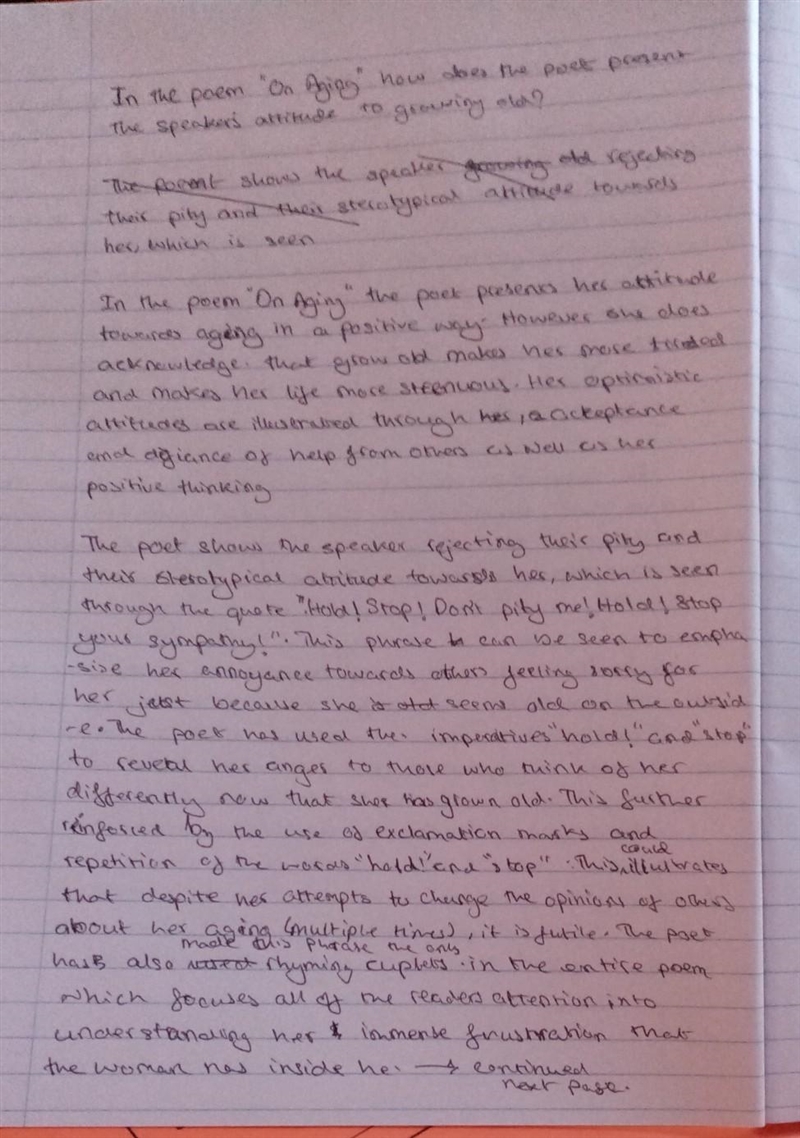 In the poem "On Aging" how does the poet present
the speakers attitude to growing old?
The poem shows the speaker growing old rejecting
their pity and their sterotypical attitude towards
her, which is seen
In the poem "On Aging" the poet presents her attitude
towards aging in a positive way. However she does
acknowledge. that grow old makes her more
and makes her life more steenuous. Her optimistic
attitudes are illustrated through her, acceptance
and defiance of help from others as well as her
positive thinking
The poet shows the speaker rejecting their pity and
their sterotypical attitude towards her, which is seen
through the quote "Hold! Stop! Don't pity me! Hold! Stop
your sympathy!". This phrase can be seen to empha
-size her annoyance towards others feeling sorry for
her just because she is old seems old on the outsid
-e. The poet has used the. imperatives "hold!" and "stop"
to reveal her anger to those who think of her
differently now that she has grown old. This further
reinforced by the use of exclamation marks and
repetition of the words "hold!" and "stop". This could illustrates
that despite her attempts to change the opinions of others
about her aging (multiple times), it is futile. The poet
has also made this phrase the only rhyming cuplets. in the entire poem
which focuses all of the readers attention into
understanding her immense frustration that
the woman has inside he. → continued
next page.